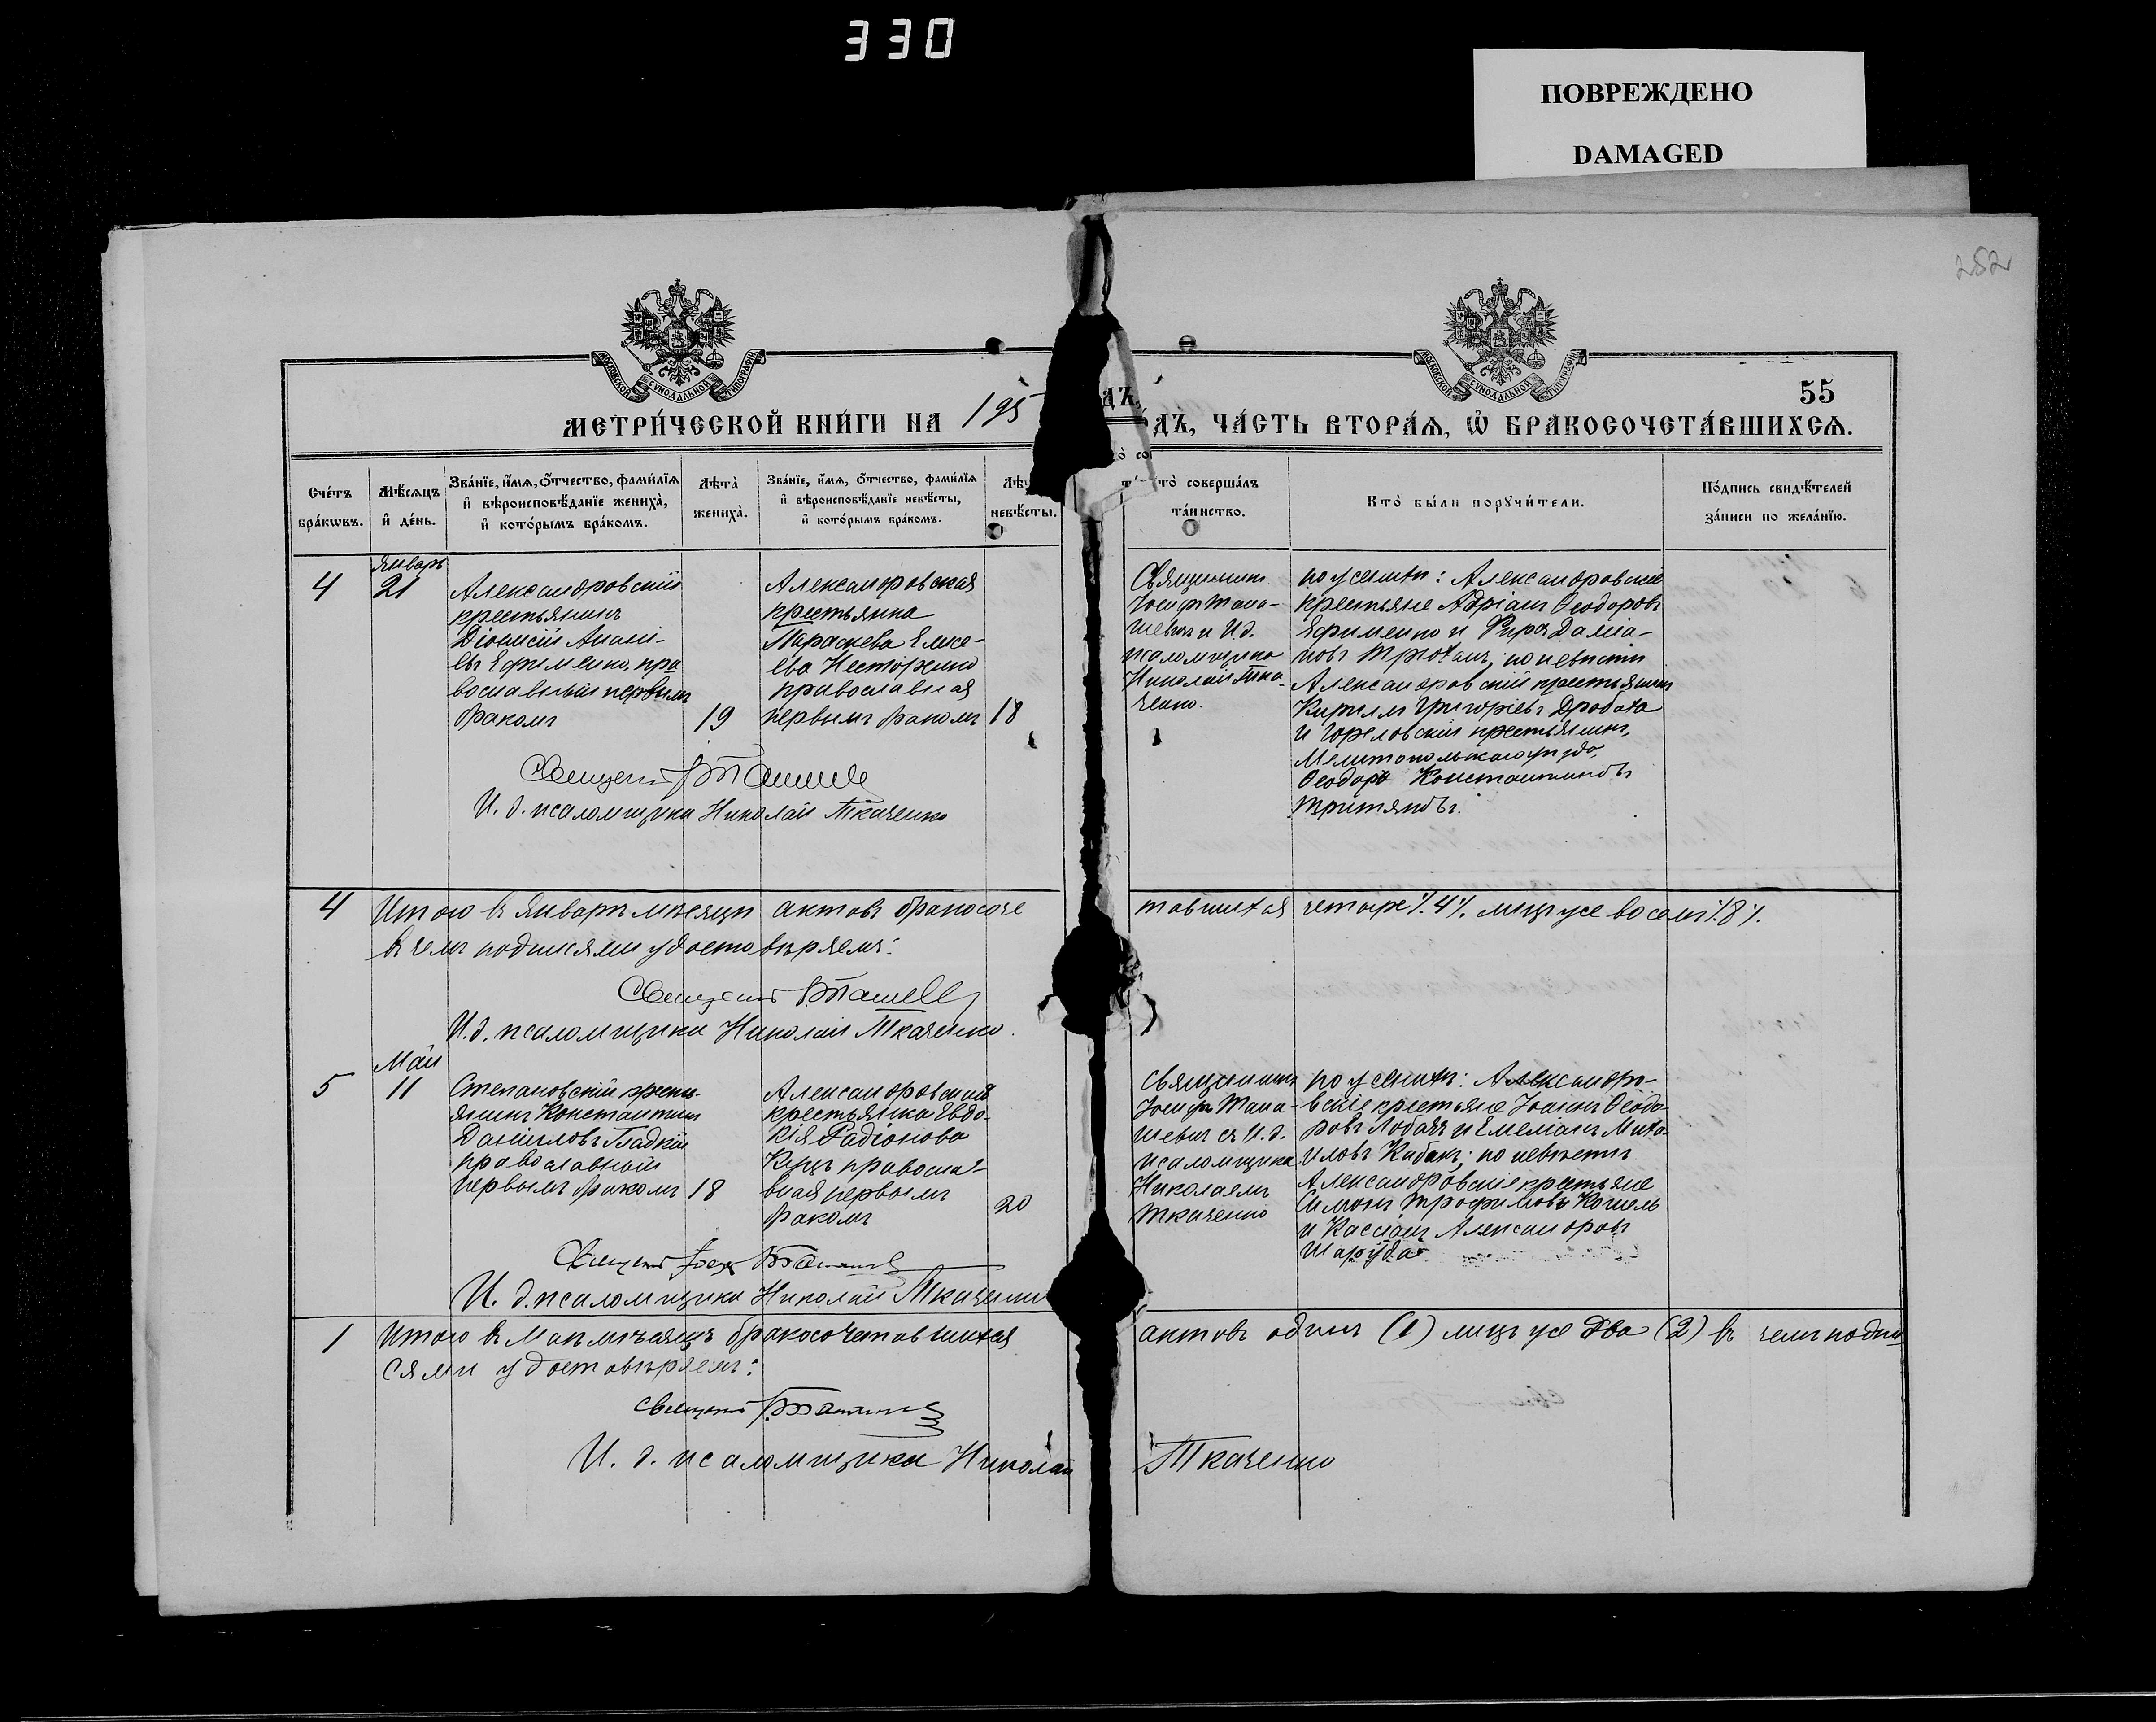 330
ПОВРЕЖДЕНО
DAMAGED
252
55
МЕТРИ́ЧЕСКОЙ КНИ́ГИ НА 195
ДЪ, ЧА́СТЬ ВТОРА́Ѧ, Ѡ БРАКОСОЧЕТА́ВШИХСѦ.
Сче́тъ бра́кѡвъ.
Мѣ́сѧцъ и҆ де́нь.
Зва́нїе, и҆́мѧ, ѻ҆́тчество, фами́лїѧ и҆ вѣроисповѣ́данїе жениха̀, и҆ кото́рымъ бра́комъ.
Лѣта̀ жениха̀.
Зва́нїе, и҆́мѧ, ѻ҆́тчество, фами́лїѧ и҆ вѣроисповѣ́данїе невѣ́сты, и҆ кото́рымъ бра́комъ.
невѣ́сты.
то̀ соверша́лъ та́инство.
Кто̀ бы́ли порꙋчи́тели.
По́дпись свидѣ́телей за́писи по жела́нїю.
4
Январь
21
Александровскій
крестьянинъ
Діонисій Анані-
евъ Ефименко, пра
вославный первымъ
бракомъ
19
Александровская
крестьянка
Параскева Елисе-
ева Несторенко
православная
первымъ бракомъ
18
Священникъ
Іосифъ Тана-
шевичъ и И. д.
псаломщика
Николай Тка-
ченко.
по женихѣ: Александровскіе
крестьяне Адріанъ Ѳеодоровъ
Ефименко и Даміа-
новъ; по невѣстѣ
Александровскій крестьянинъ
Кириллъ Григоріевъ Дробота
и Гореловскій крестьянинъ,
Мелитопольскаго уѣзда,
Ѳеодоръ Константиновъ
Священникъ
И. д. псаломщика Николай Ткаченко
4
Итого въ Январѣ мѣсяцѣ актовъ бракосоче
тавшихся четыре /.4/. лицъ же восемь /.8/.
въ чемъ подписями удостовѣряемъ:
Священникъ
И. д. псаломщика Николай Ткаченко.
5
Май
11
Степановскій кресть-
янинъ Константинъ
Даніиловъ Гладкій
православный
первымъ бракомъ
18
Александровская
крестьянка Евдо-
кія Радіонова
Куцъ правосла-
вная первымъ
бракомъ
20
Священникъ
Іосифъ Тана-
шевичъ съ И. д.
псаломщика
Николаемъ
Ткаченко
по женихѣ: Александро-
вскіе крестьяне Іоаннъ Ѳеодо-
ровъ Лобачъ и Емеліанъ Миха-
иловъ Кабакъ; по невѣстѣ
Александровскіе крестьяне
Симонъ Трофимовъ Кошель
и Кассіанъ Александровъ
Шаруда
Священникъ Іосифъ
И. д. псаломщика Николай Ткаченко
1
Итого въ Маѣ мѣсяцѣ бракосочетавшихся
актовъ одинъ (1) лицъ же два (2) въ чемъ подпи
сями удостовѣряемъ:
Священникъ
И. д. псаломщика Николай Ткаченко